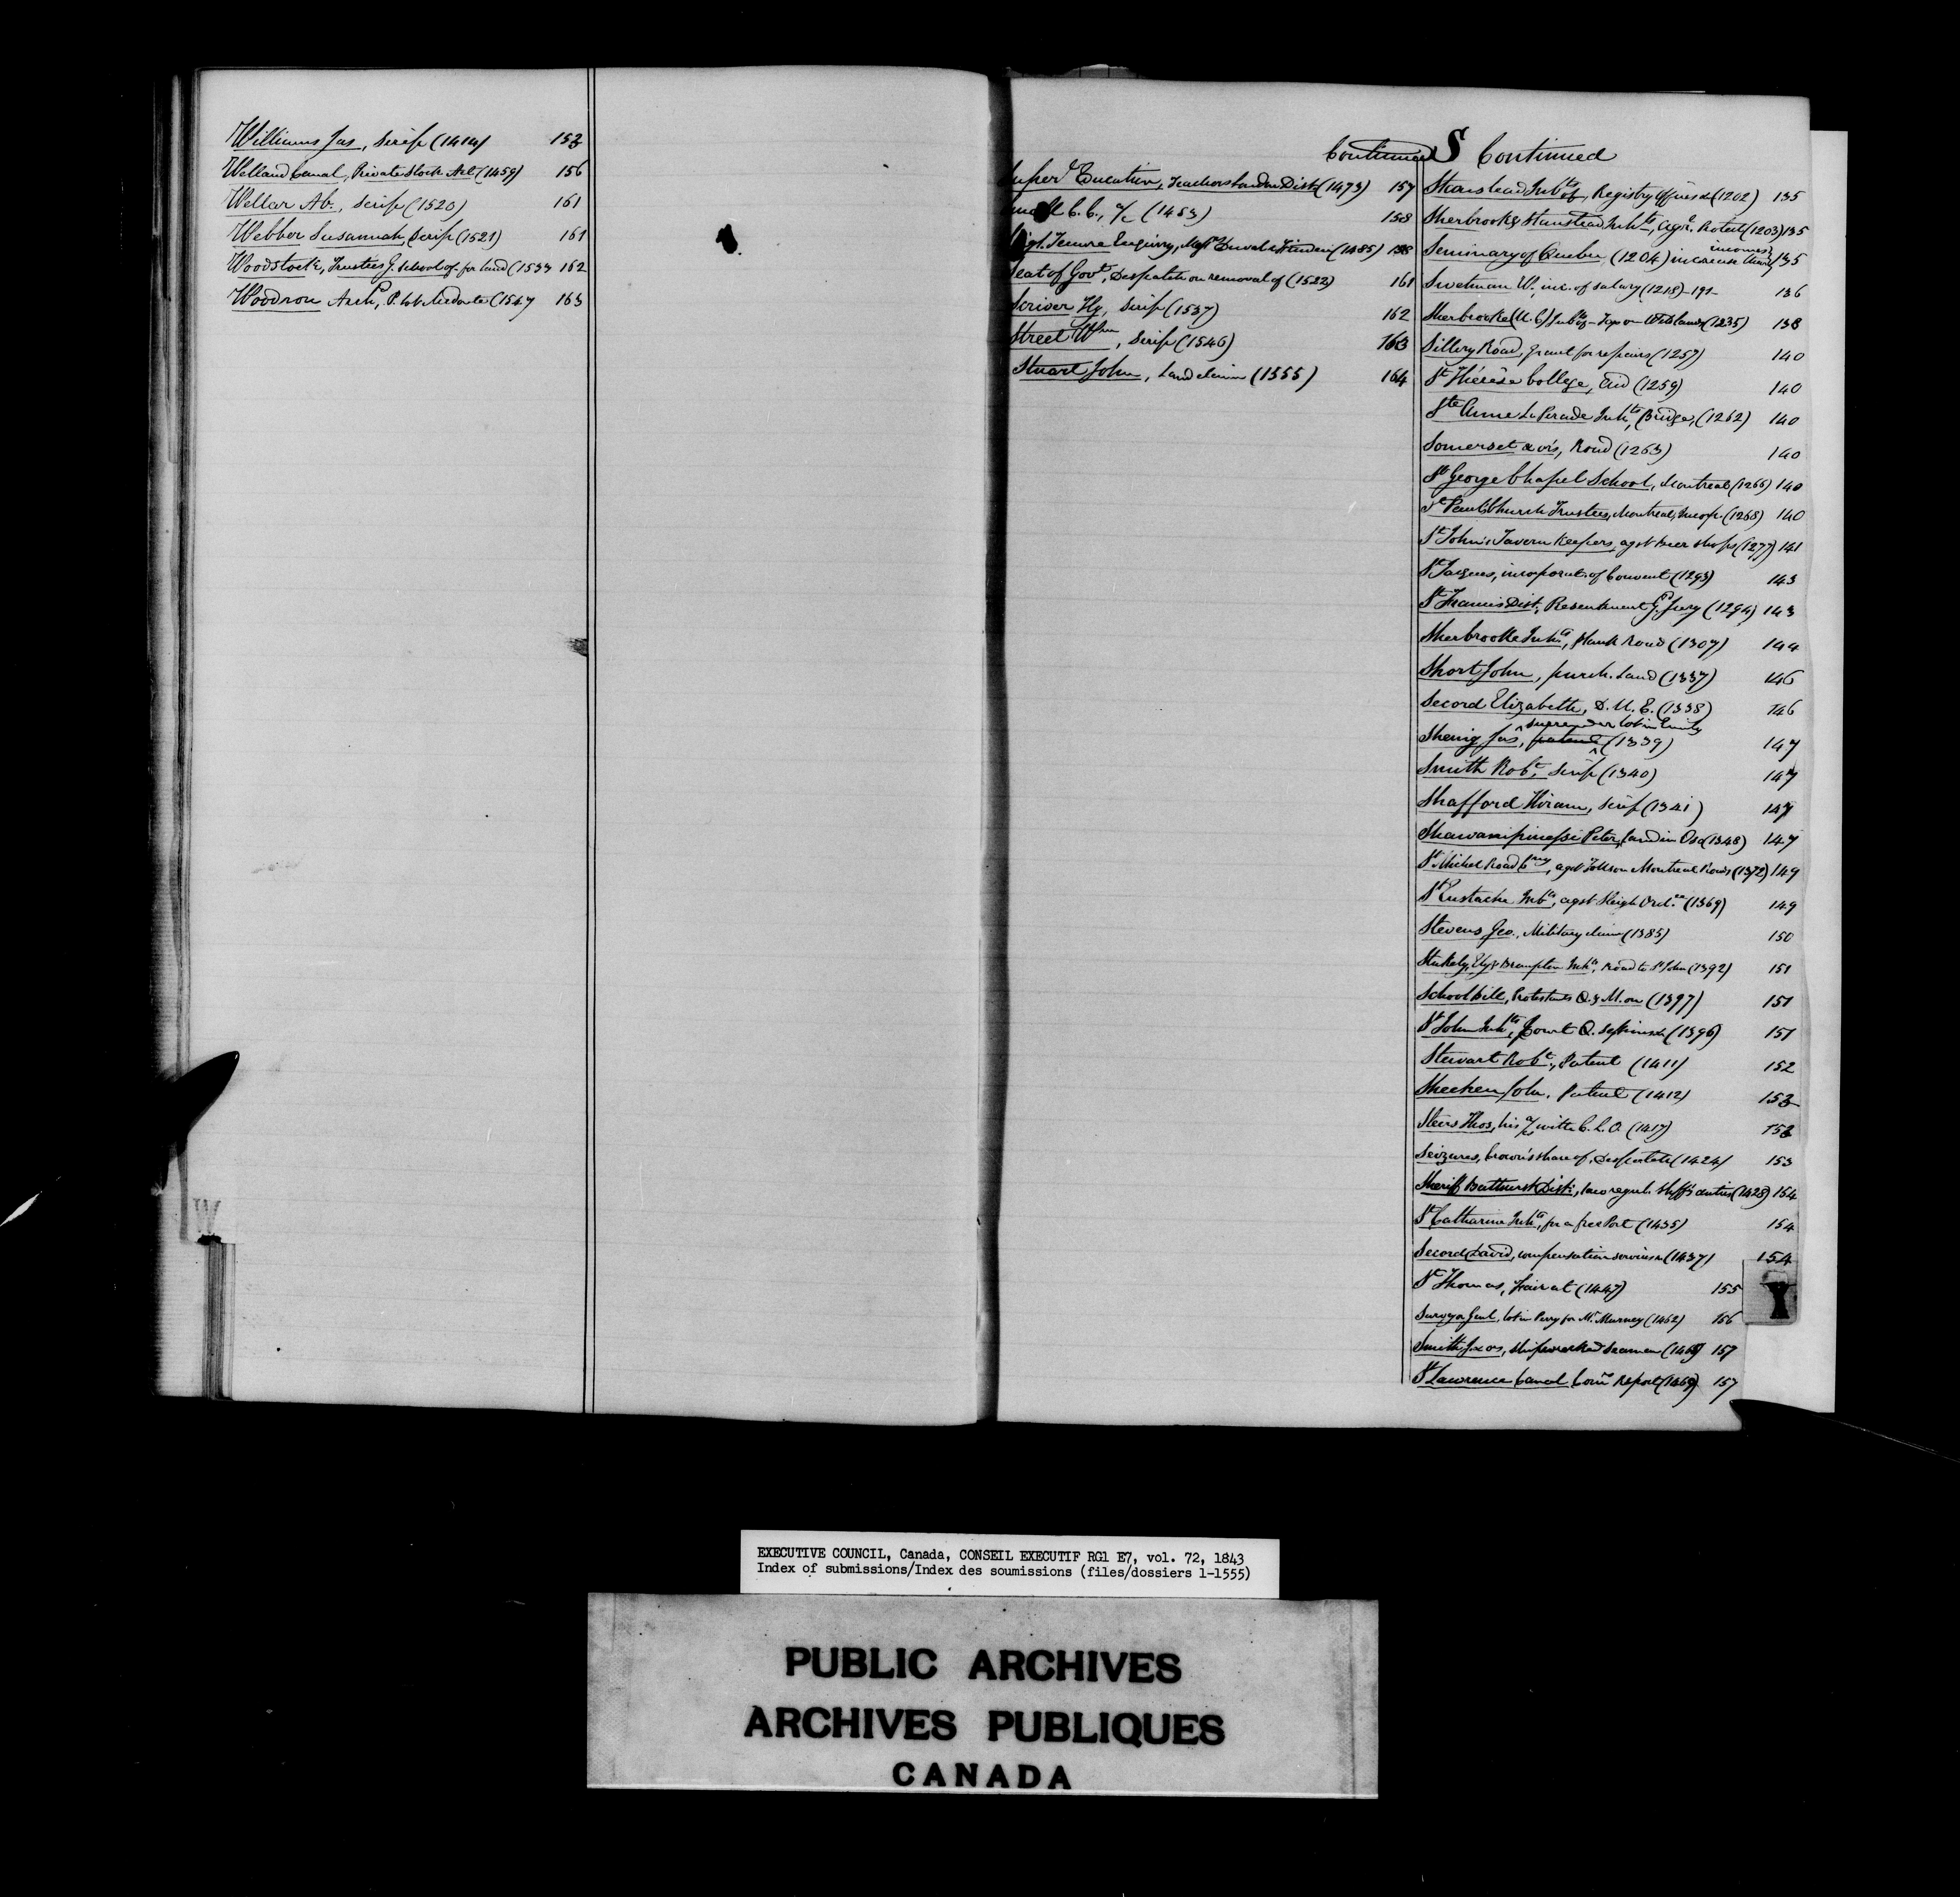 Williams Jas, Scrip (1414) 153
Welland Canal, Private Stock Act (1459) 156
Wellar Ab., Scrip (1520) 161
Webber Susannah, Scrip (1521) 161
Woodstock, Trustees G. School of - for land (1533 162
Woodrow Arch^d, P. (1547 163
W
Continued S Continued
Super^t Education, Teachers London Dist (1473) 157
C. C., a/c (1453) 158
Tenure Enquiry, (1485) 158
Seat of Gov^t, Despatch on removal of (1522) 161
Scriver Hy, Scrip (1537) 162
Street W^m, Scrip (1546) 163
Stuart John, Land claim (1555) 164
Stanstead Inh^ts of, Registry Offices &c (1202) 135
Sherbrooke & Stanstead Inh^ts, Agr^l Protect (1203) 135
Seminary of Quebec (1204) increase income 135
Swetman W., inc. of salary (1218) 136
Sherbrooke (U.C.) Inh^ts of - Tax on Wild lands (1235) 138
Sillery Road, Grant for repairs (1257) 140
S^t Thérèse College, Aid (1259) 140
S^te Anne La Perade Inh^ts, Bridge, (1262) 140
Somerset & ors, Road (1263) 140
S^t George Chapel School, Montreal (1266) 140
S^t Paul Church Trustees, Montreal, Incorp. (1268) 140
S^t John's Tavern Keepers, agst Beer Shops (1277) 141
S^t Jacques, incorporat. of Convent (1293) 143
S^t Francis Dist., Presentment G^d Jury (1294) 143
Sherbrooke Inh^ts, Plank Road (1307) 144
Short John, purch. Land (1337) 146
Secord Elizabeth, D. U. E. (1338) 146
surrender lot in Emily
Jas, patent (1339) 147
Smith Rob^t, Scrip (1340) 147
Shafford Hiram, Scrip (1341) 147
Peter, land in (1348) 147
S^t Michel Road C^ny, agst Tolls on Montreal Roads (1372) 149
S^t Eustache Inh^ts, agst Sleigh Ord^ce (1369) 149
Stevens Geo., Military claim (1385) 150
Stukely, Ely & Brompton Inh^ts, Road to S^t John (1392) 151
School bill, Protestants Q. & M. on (1397) 151
S^t John Inh^ts, Court Q. Sessions &c (1396) 151
Stewart Rob^t, Patent (1411) 152
John, Patent (1412) 153
Steers Thos, his a/c with C. L. O. (1417) 153
Seizures, Crown's share of, Despatch (1424) 153
Sheriff Bathurst Dist., Shff's duties (1428) 154
S^t Catharine Inh^ts, for a free Port (1435) 154
Secord David, compensation services &c (1437) 154
S^t Thomas, Fair at (1447) 155
Surveyor Genl, lot in Percy for M^r Murney (1462) 156
Smith J. & ors, shipwrecked Seamen (1468) 157
S^t Lawrence Canal Com^rs Report (1469) 157
EXECUTIVE COUNCIL, Canada, CONSEIL EXECUTIF RG1 E7, vol. 72, 1843
Index of submissions/Index des soumissions (files/dossiers 1-1555)
PUBLIC ARCHIVES
ARCHIVES PUBLIQUES
CANADA